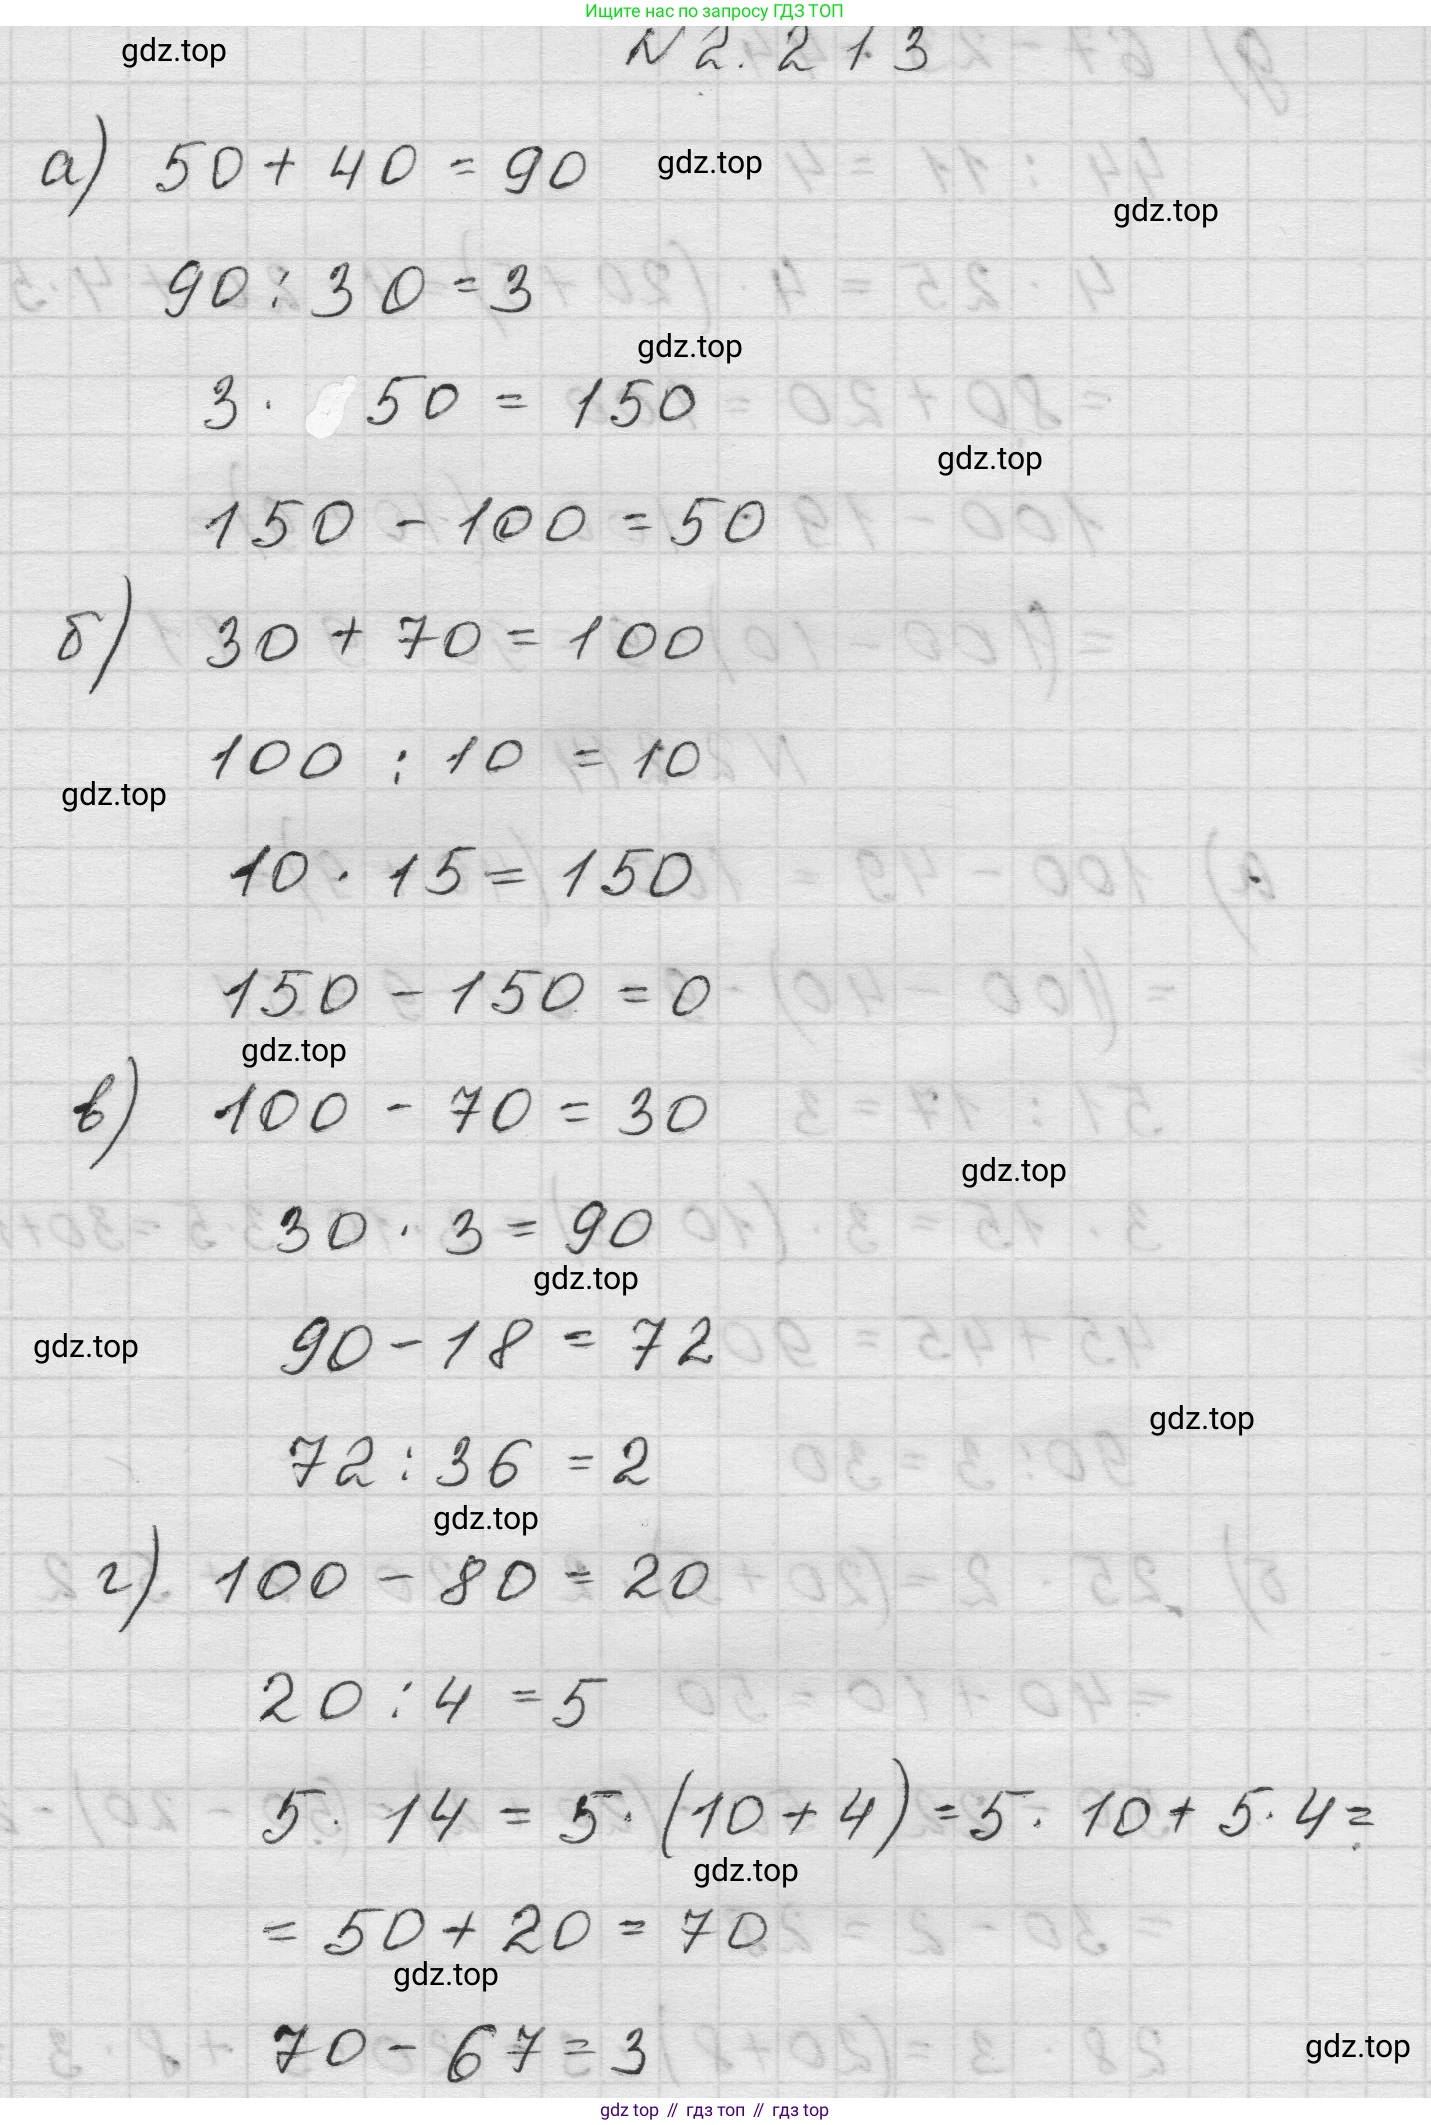 Ищите нас по запросу ГДЗ ТОП
gdz.top
N 2.213
а) 50 + 40 = 90
gdz.top
gdz.top
90 : 30 = 3
gdz.top
3 · 50 = 150
gdz.top
150 - 100 = 50
б) 30 + 70 = 100
100 : 10 = 10
gdz.top
10 · 15 = 150
150 - 150 = 0
gdz.top
в) 100 - 70 = 30
gdz.top
30 · 3 = 90
gdz.top
90 - 18 = 72
gdz.top
gdz.top
72 : 36 = 2
gdz.top
г) 100 - 80 = 20
20 : 4 = 5
5 · 14 = 5 · (10 + 4) = 5 · 10 + 5 · 4 =
gdz.top
= 50 + 20 = 70
gdz.top
70 - 67 = 3
gdz.top
gdz top // гдз топ // гдз top